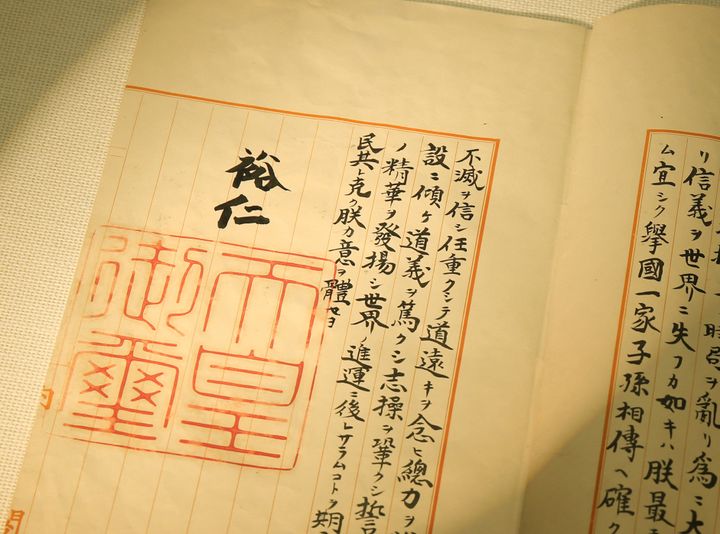 時局ヲ亂リ爲ニ大
リ信義ヲ世界ニ失フカ如キハ朕最
ム宜シク擧國一家子孫相傳ヘ確ク
不滅ヲ信シ任重クシテ道遠キヲ念ヒ總力ヲ
設ニ傾ケ道義ヲ篤クシ志操ヲ鞏クシ誓
ノ精華ヲ發揚シ世界ノ進運ニ後レサラムコトヲ期
民其レ克ク朕カ意ヲ體セヨ
裕仁
天皇
御璽